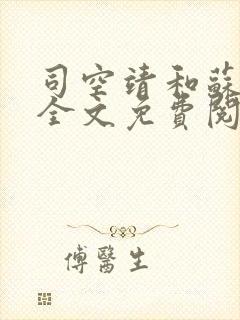 司空靖和蘇
全文免費閱
傅醫生